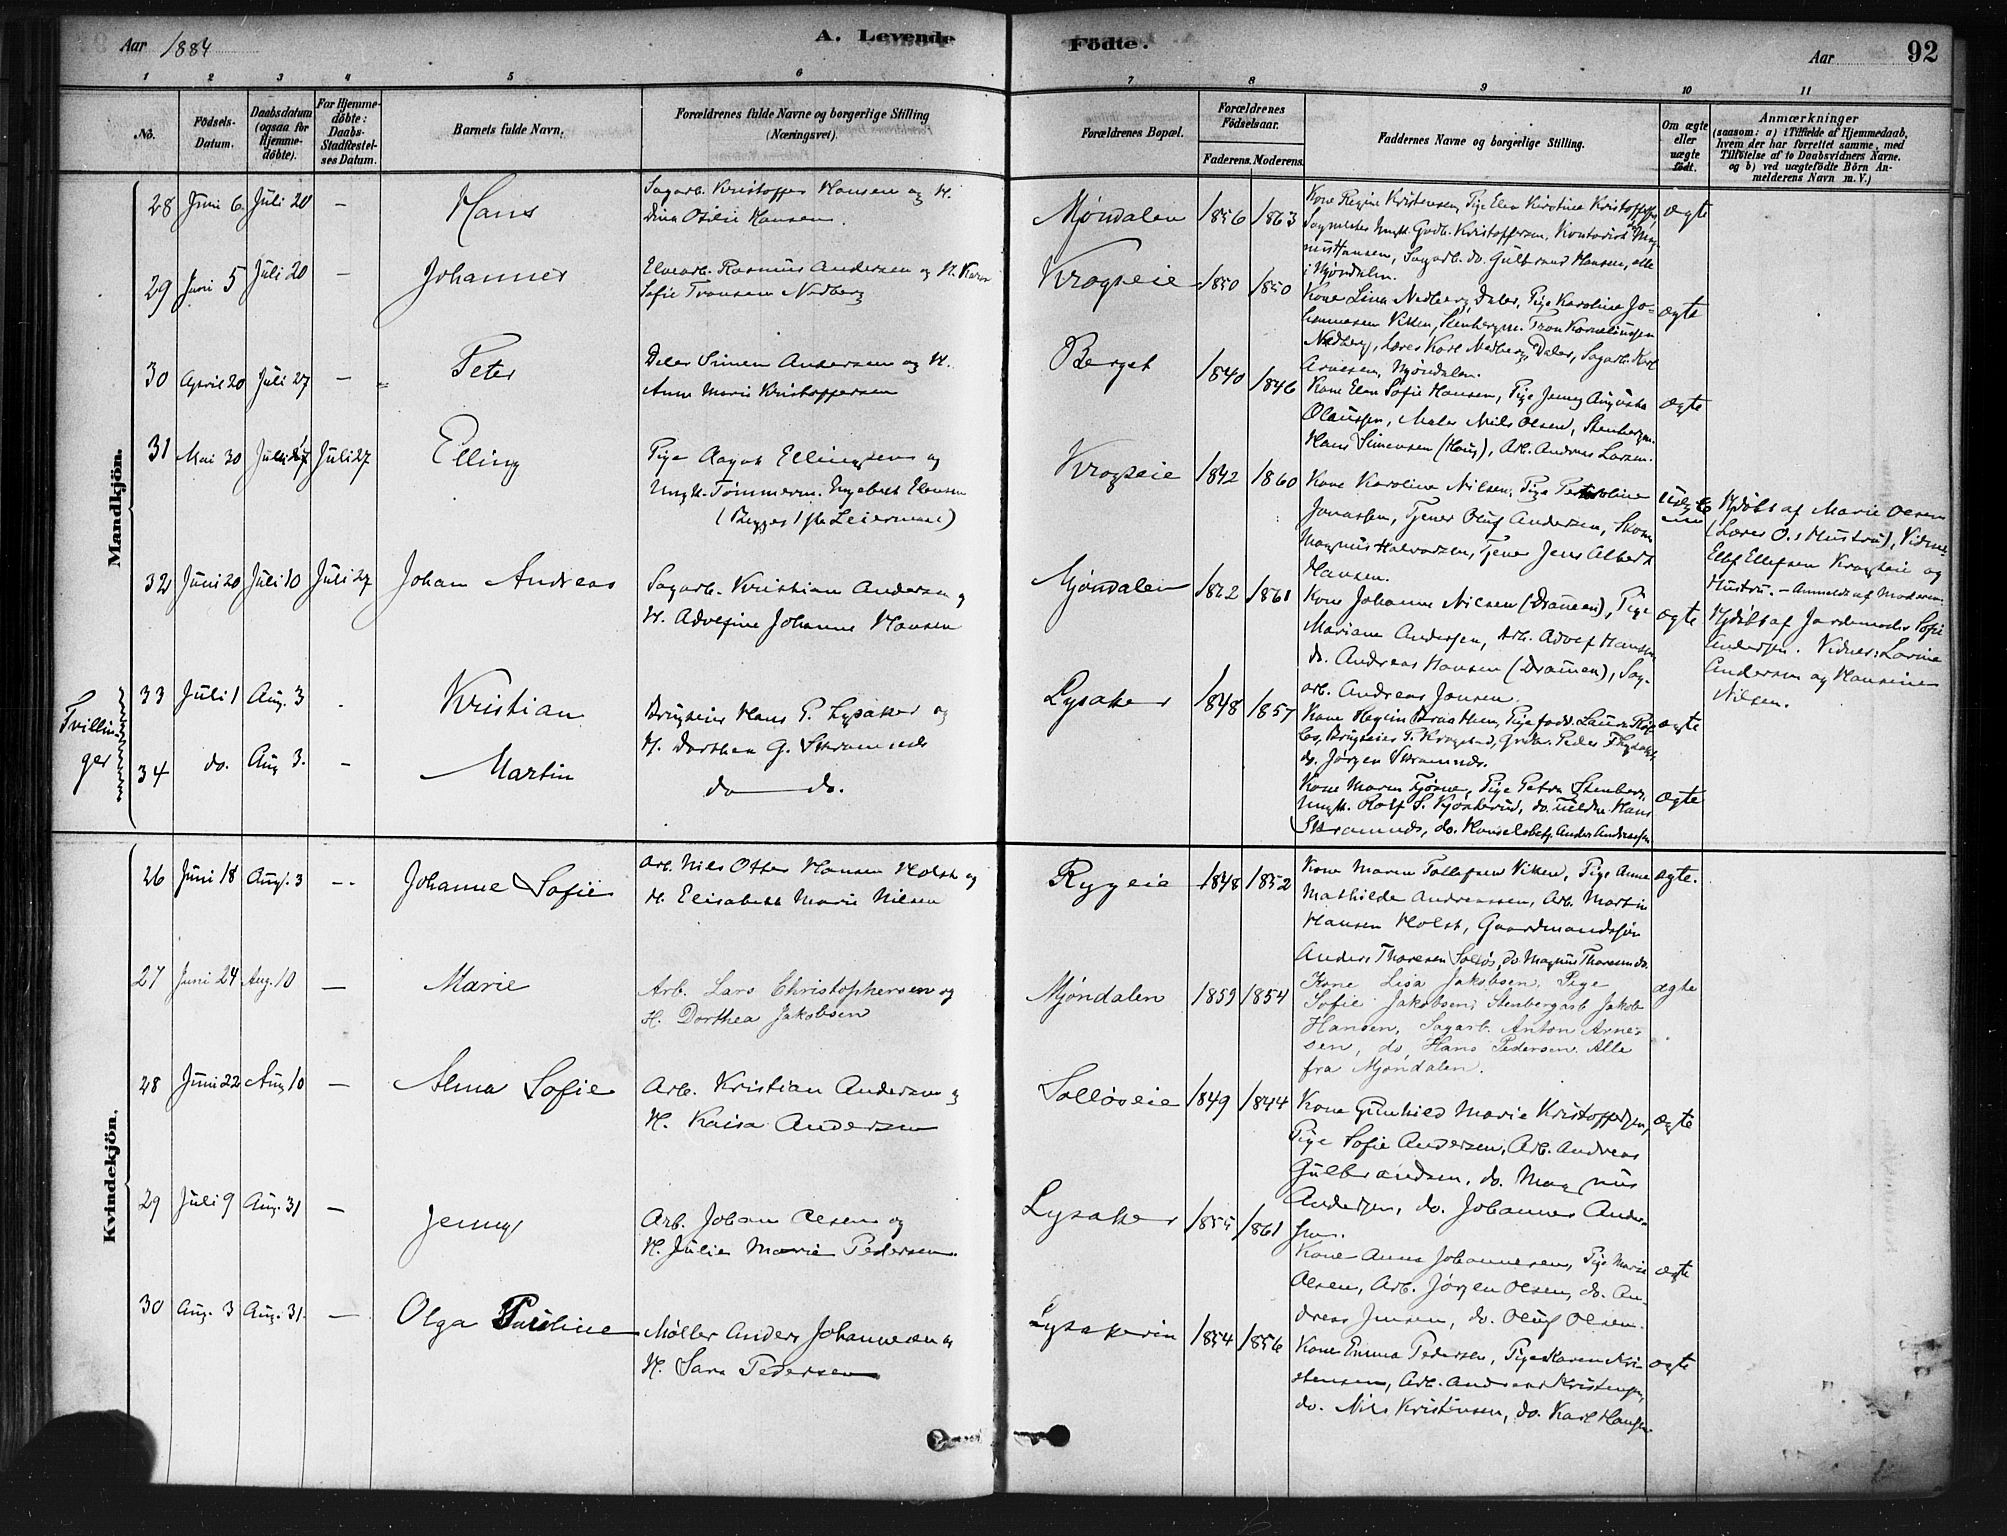 Aar 1884
A. Levende
Födte.
Aar
92
1 2 3 4 5 6 7 8 9 10 11
No.
Födsels-
Datum.
Daabsdatum
(ogsaa for
Hjemme-
döbte).
For Hjemme-
döbte:
Daabs-
Stadfæstel-
ses Datum.
Barnets fulde Navn.
Forældrenes fulde Navne og borgerlige Stilling
(Næringsvei).
Forældrenes Bopæl.
Forældrenes
Födselsaar.
Faderens. Moderens.
Faddernes Navne og borgerlige Stilling.
Om ægte
eller
uægte
födt.
Anmærkninger
(saasom: a) i Tilfælde af Hjemmedaab,
hvem der har forrettet samme, med
Tilföielse af to Daabsvidners Navne.
og b) ved uægtefödte Börn An-
melderens Navn m. V.)
Mandkjön.
28 Juni 6 Juli 20 — Hans
Sagarb. Kristoffer Hansen og H.
Dina Otilie Hansen
Mjøndalen 1856 1863
Kone Regine Kristensen, Pige Elen Kirstine Kristoffersen,
Sagmester Ungk. Gudb. Kristoffersen, Kontorist Mag-
nus Hansen, Sagarb. do. Gulbrand Hansen, alle
i Mjøndalen.
ægte
29 Juni 5 Juli 20 — Johannes
Elvearb. Rasmus Andersen og H. Karen
Sofie Tronsen Nedberg
Krogseie 1850 1850
Kone Lina Nedberg, Daler, Pige Karoline Jo-
hannesen Viken, Stenbergm. Tron Korneliussen
Nedberg, Lærer Karl Nedberg, Daler, Sagarb. Karl
Arnesen, Mjøndalen.
ægte
30 April 20 Juli 27 — Peter
Daler Simen Andersen og H.
Anne Marie Kristoffersen
Berget 1840 1846
Kone Elen Sofie Hansen, Pige Jenny Augusta
Olaussen, Maler Nils Olsen, Stenbergm.
Hans Simensen (Haug), Arb. Andreas Larsen.
ægte
31 Mai 30 Juli Juli 27 Elling
Pige Aagot Ellingsen og
Ungk. Tømmerm. Ingebret Hansen
(Begges 1ste Leiermaal)
Krogseie 1842 1860
Kone Karoline Nilsen, Pige Petroline
Jonassen, Tjener Oluf Andersen, Skom.
Magnus Halvorsen, Tjener Jens Albert
Hansen.
Uægte
Hjdøbt af Marie Olsen
(Lærer O.s Hustru), Vidner
Ellef Ellefsen Krogseie og
Hustru. — Anmeldt af Moderen.
32 Juni 20 Juli 10 Juli 27 Johan Andreas
Sagarb. Kristian Andersen og
H. Adolfine Johanne Hansen
Mjøndalen 1862 1861
Kone Johanne Nilsen (Drammen), Pige
Mariane Andersen, Arb. Adolf Hansen,
do. Andreas Hansen (Drammen), Sag-
arb. Andreas Jonsen
ægte
Hjdøbt af Jordemoder Sofie
Andersen. Vidner: Lovine
Andersen og Hansine
Nilsen.
Tvillin-
ger
33 Juli 1 Aug. 3 Kristian
Brugseier Hans P. Lysaker og
H. Dorthea G. Stramnds
Lysaker 1848 1857
ægte
do. Jørgen
34 do. Aug 3. — Martin
do do.
Kone Maren Pige Petra Stenberg,
ægte
Kvindekjön.
26 Juni 18 Aug. 3 — Johanne Sofie
Arb. Nils Otter Hansen Holst og
H. Elisabeth Marie Nilsen
Rygeie 1848 1852
Kone Maren Tollefsen Viken, Pige Anne
Mathilde Andreassen, Arb. Martin
Hansen Holst, Gaardmandssøn
Anders Thoresen Solløs, do Magnus Thoresen do.
ægte.
27 Juni 24 Aug. 10 — Marie
Arb. Lars Christophersen og
H. Dorthea Jakobsen
Mjøndalen 1859 1854
Kone Lisa Jakobsen, Pige
Sofie Jakobsen, Stenbergarb. Jakob
Hansen, Sagarb. Anton Arne-
sen, do, Hans Pedersen. Alle
fra Mjøndalen.
ægte
28 Juni 22 Aug 10 — Alma Sofie
Arb. Kristian Andersen og
H. Kaisa Andersen
Solløseie 1849 1844
Kone Gunhild Marie Kristoffersen,
Pige Sofie Andersen, Arb. Andreas
Gulbrandsen, do. Magnus
Andersen, do. Johannes Ander-
sen.
ægte
29 Juli 9 Aug. 31 — Jenny
Arb. Johan Olsen og
H. Julie Marie Pedersen.
Lysaker 1855 1861
Kone Anna Johannesen, Pige Marie
Olsen, Arb. Jørgen Olsen, do. An-
dreas Jensen, do. Oluf Olsen.
ægte
30 Aug. 3 Aug. 31. — Olga Pauline
Møller Anders Johannesen og
H. Sara Pedersen
Lysakerin 1854 1856
Kone Emma Pedersen, Pige Karen Kri-
stensen, Arb. Andreas Kristensen,
do. Nils Kristensen, do. Karl Hansen.
ægte